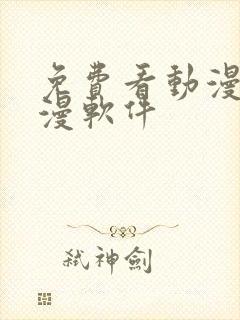 免費看動漫
漫軟件
弒神劍